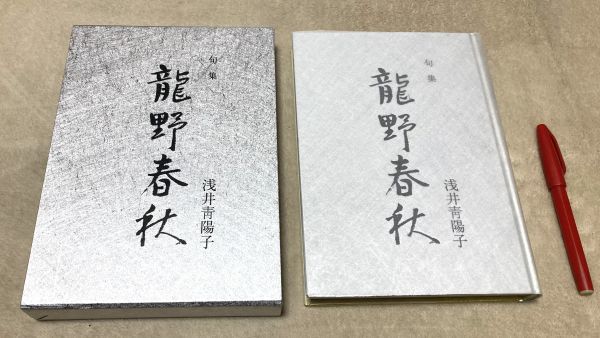 句集
龍野春秋
浅井青陽子
句集
龍野春秋
浅井青陽子